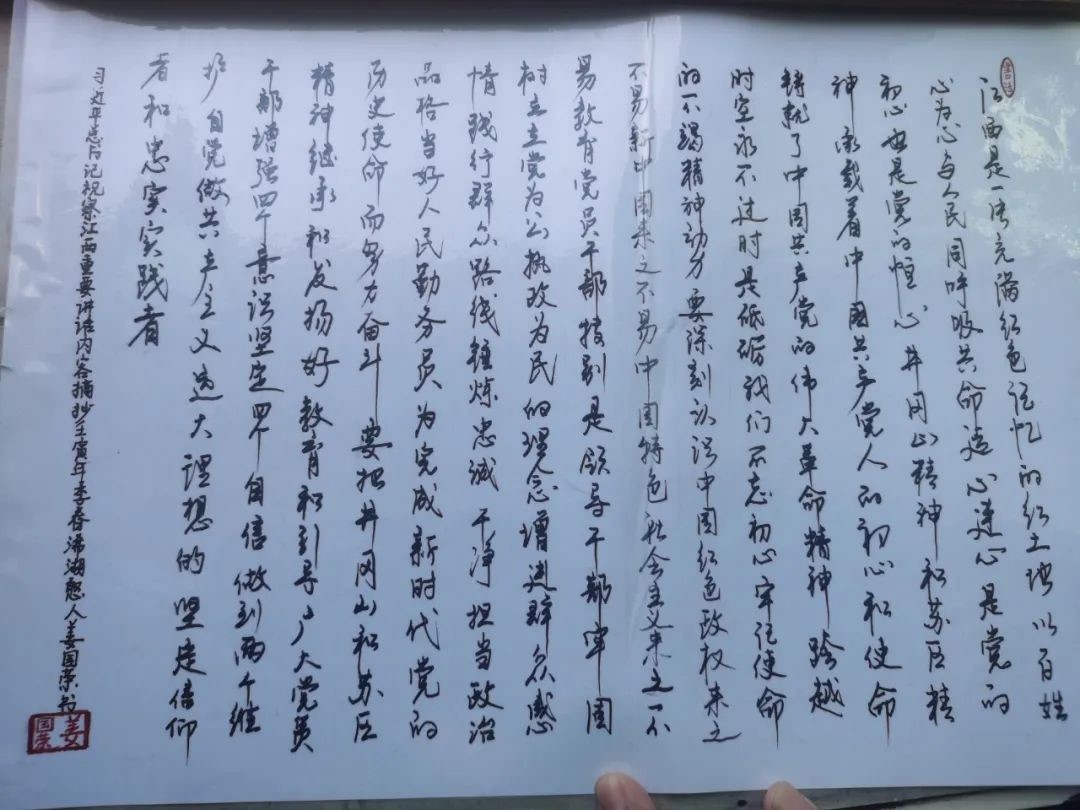 江西是一片充满红色记忆的红土地以百姓
心为心与人民同呼吸共命运心连心是党的
初心也是党的恒心井冈山精神和苏区精
神承载着中国共产党人的初心和使命
铸就了中国共产党的伟大革命精神跨越
时空永不过时是砥砺我们不忘初心牢记使命
的不竭精神动力要深刻认识中国红色政权来之
不易新中国来之不易中国特色社会主义来之不
易教育党员干部特别是领导干部牢固
树立立党为公执政为民的理念增进群众感
情践行群众路线锤炼忠诚干净担当政治
品格当好人民勤务员为完成新时代党的
历史使命而努力奋斗要把井冈山和苏区
精神继承和发扬好教育和引导广大党员
干部增强四个意识坚定四个自信做到两个维
护自觉做共产主义远大理想的坚定信仰
者和忠实实践者
习近平总书记视察江西重要讲话内容摘抄壬寅年季春浠湖憨人姜国荣书
姜国荣